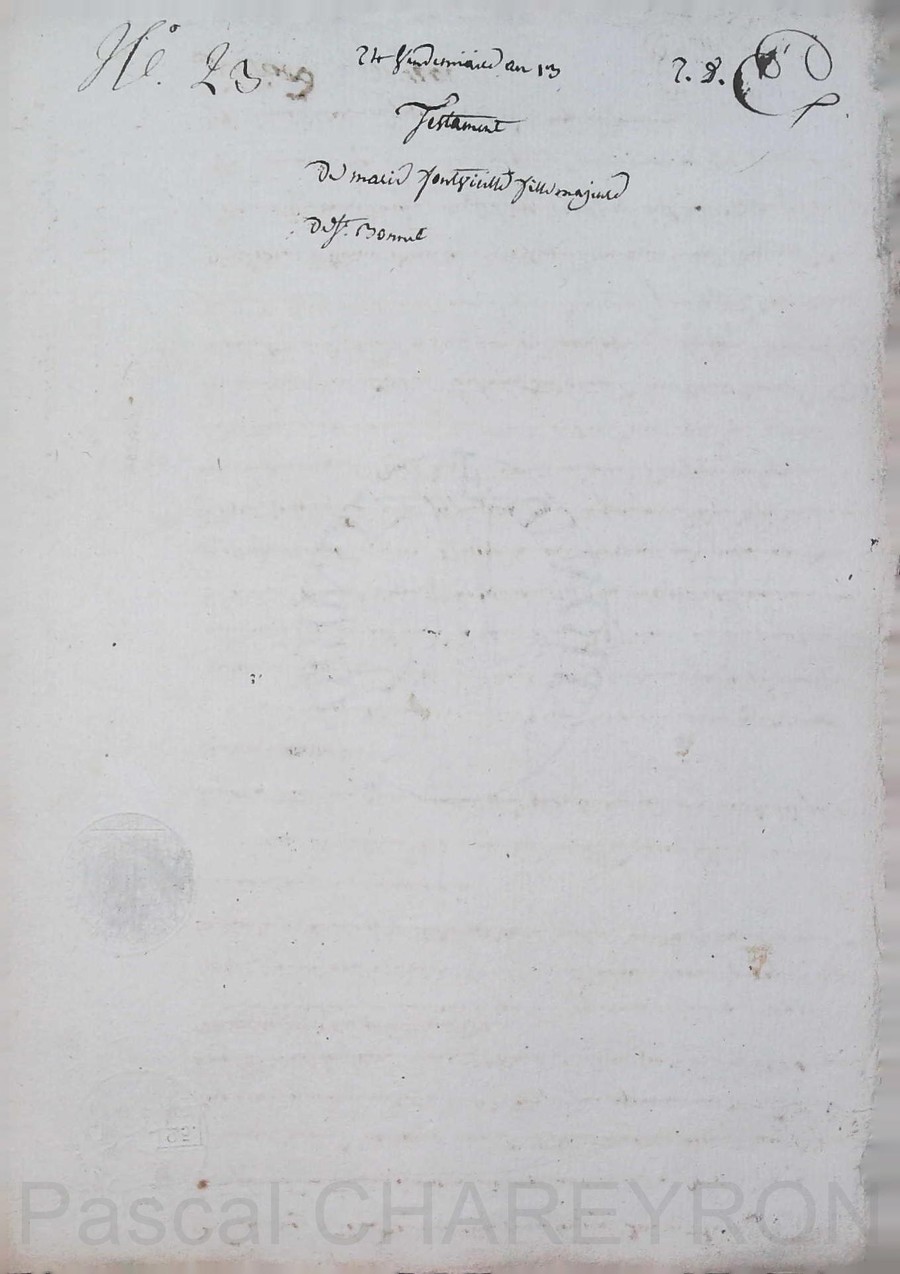 N.º 23
24 Vendemiaire an 13
Testament
De marie fontvieille fille majeure
De St. Bonnet
Pascal CHAREYRON